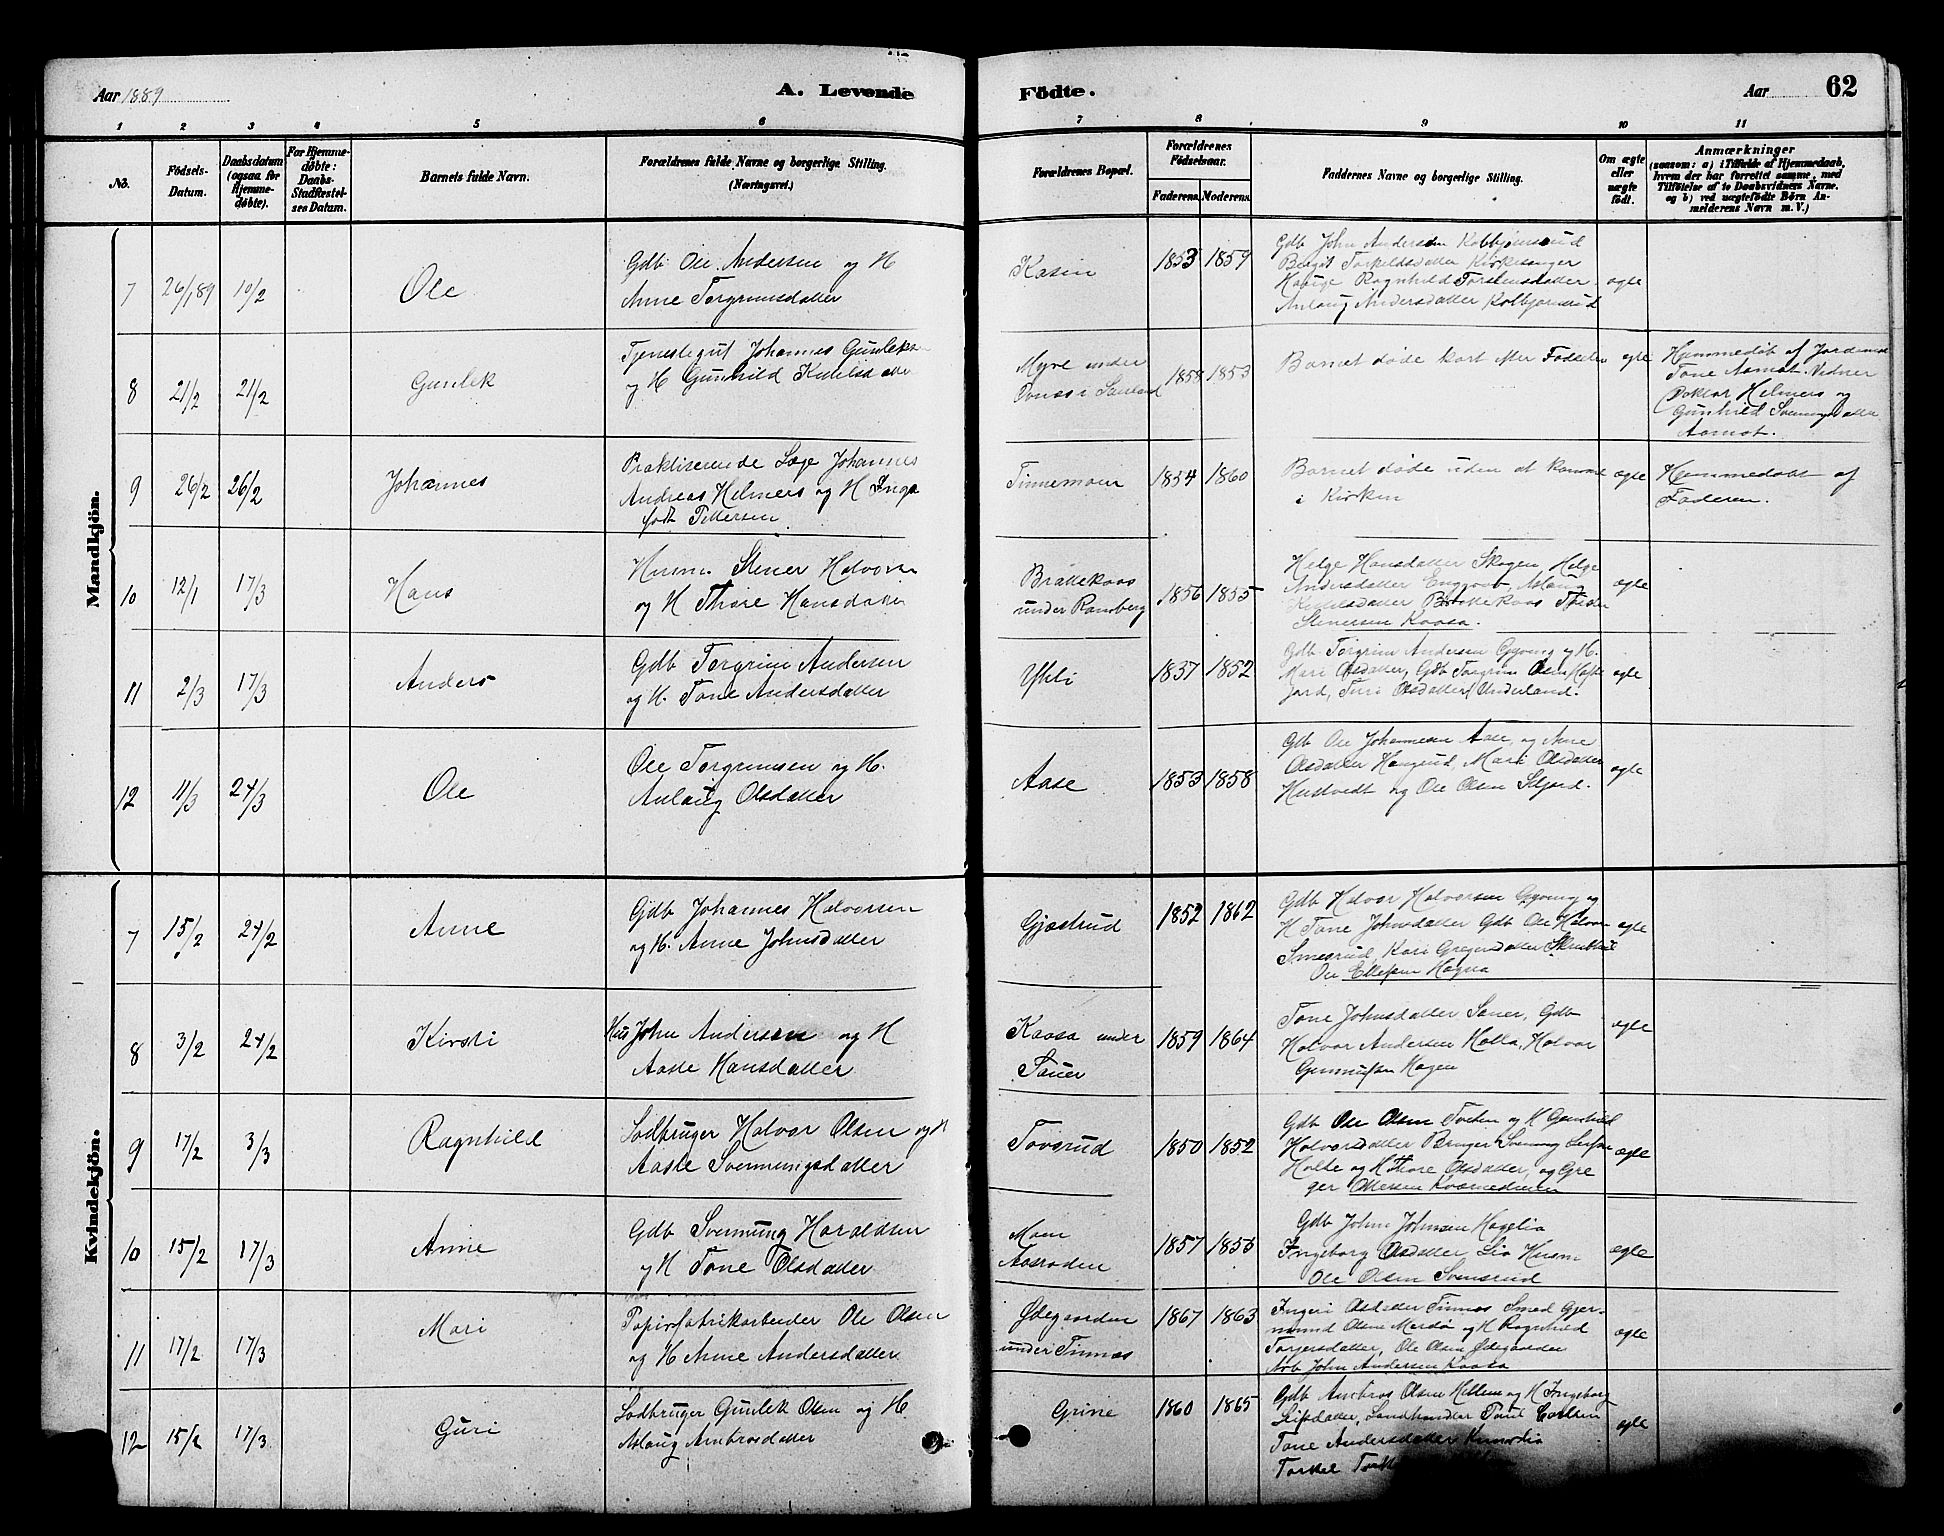 Aar 1889
A. Levende
Födte.
Aar
62
1 2 3 4 5 6 7 8 9 10 11
No.
Födsels-
Datum.
Daabsdatum
(ogsaa for
Hjemme-
döbte).
For Hjemme-
döbte:
Daabs-
Stadfæstel-
ses Datum.
Barnets fulde Navn.
Forældrenes fulde Navne og borgerlige Stilling.
(Næringsvei.)
Forældrenes Bopæl.
Forældrenes
Födselsaar.
Faderens.
Moderens.
Faddernes Navne og borgerlige Stilling.
Om ægte
eller
uægte
födt.
Anmærkninger
(saasom: a) i Tilfælde af Hjemmedaab,
hvem der har forrettet samme, med
Tilföielse af to Daabsvidners Navne.
og b) ved uægtefödte Börn An-
melderens Navn m. V.)
Mandkjön.
7 26/1 89 10/2 Ole
Gdb Ole Andersen og H
Anne Torgrimsdatter
Kasin 1853 1859
Gdb John Andersen Kolbjørnsrud
Bergit Torkeldsdatter Kirkesanger
Hauge Ragnhild Torstensdatter
Anlaug Andersdatter Kolbjørnsrud
ægte
8 21/2 21/2 Gunlek
Tjenestegut Johannes Gunleksen
og H Gunhild
Myre under
1858 1853
Barnet døde kort efter Fødselen
ægte
Hjemmedøbt af
Tone Aamot. Vidner
Doktor Helmers og
Gunhild
Aamot.
9 26/2 26/2 Johannes
Praktiserende Læge Johannes
Andreas Helmers og H Inga
født Tellersen
Tinnemoen 1854 1860
Barnet døde uden at komme
i Kirken
ægte
Hjemmedøbt af
Faderen.
10 12/1 17/3 Hans
Husm. Stener Halvorsen
og H Thore Hansdatter
Brattekaas
under Ramberg
1856 1855
Helge Hansdatter Skogen, Helge
Andersdatter Aslaug
Brattekaas
Stenersen Kaasa.
ægte
11 2/3 17/3 Anders
Gdb Torgrim Andersen
og H. Tone Andersdatter
Yli 1837 1852
Gdb Torgrim Andersen Gyvong og H.
Mari Olsdatter, Gdb Torgrim Olsen
jord, Turi Olsdatter Underland.
ægte
12 11/3 24/3 Ole
Ole Torgrimsen og H.
Anlaug Olsdatter
Aase 1853 1858
Gdb Ole Johannesen Aase, og Anne
Olsdatter Haugrud, Mari Olsdatter
Hustvedt og Ole Olsen
ægte
Kvindekjön.
7 15/2 24/2 Anne
Gdb Johannes Halvorsen
og H. Anne Johnsdatter
Gjæstrud 1852 1862
Gdb Halvor Halvorsen Gyvong og
H Tone Johnsdatter Gdb Ole Halvor
Smesrud, Kari Gregersdatter
Ole Ellefsen Hagna
ægte
8 3/2 24/2 Kirsti
Hus John Andersen og H
Aaste Hansdatter
Kaasa under
Sauer
1859 1864
Tone Johnsdatter Sauer, Gdb
Halvor Andersen Holla, Halvor
Gunnufsen Hagen
ægte
9 17/2 3/3 Ragnhild
Lodbruger Halvor Olsen og H
Aaste Svenningsdatter
Tovsrud 1850 1852
Gdb Ole Olsen Tveten og H Gunhild
Halvorsdatter Bruger Svenung
Holte og H Thore Olsdatter, og Gre
ger Ottersen
ægte
10 15/2 17/3 Anne
Gdb Svennung Haraldsen
og H Tone Olsdatter
Moen
1857 1856
Gdb John Johnsen Hagelia
Ingeborg Olsdatter, Lio Husm
Ole Olsen Svensrud
ægte
11 17/2 17/3 Mari
Papirfabrikarbeider Ole Olsen
og H Anne Andersdatter
Ødegaarden
under Tinnes
1867 1863
Ingeri Olsdatter Tinnes Smed Gjer-
mund Olsen og H Ragnhild
Torgersdatter, Ole Olsen Ødegaarden
John Andersen Kaasa
ægte
12 15/2 17/3 Guri
Lodbruger Gunlek Olsen og H.
Aslaug Ambrosdatter
Grine 1860 1865
Gdb Ambros Olsen Hellem og H Ingeborg
Leifsdatter, Landhandler Tone Carlsen
Tone Andersdatter
Torkel
ægte